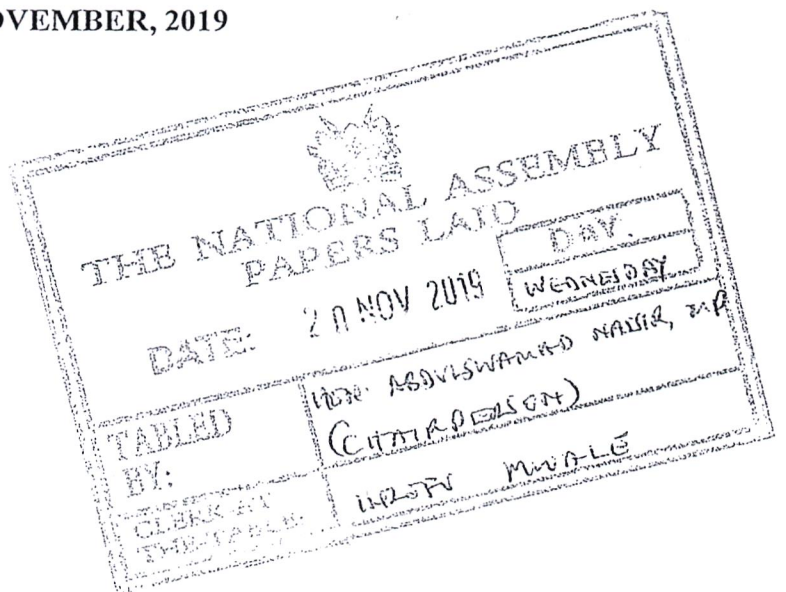 OVEMBER, 2019
THE NATIONAL ASSEMBLY
PAPERS LAID
DATE: 20 NOV 2019
DAY.
WEDNESDAY
TABLED
BY:
HON. ABDULSWAMAD NASSIR, MP
(CHAIRPERSON)
CLERK-AT
THE-TABLE:
MWALE